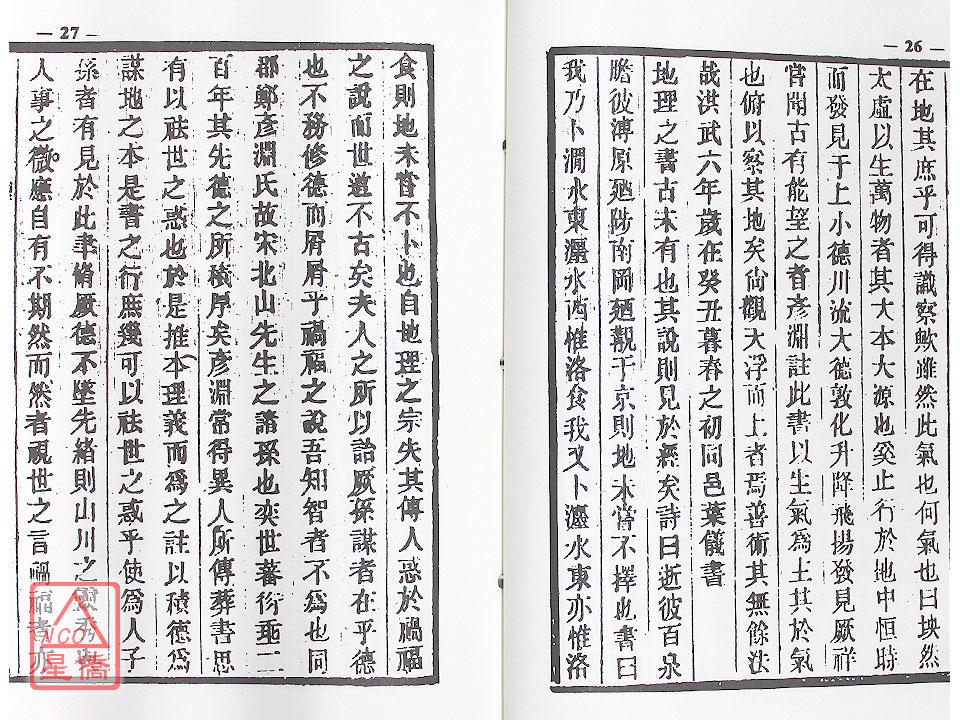 — 26 —
在地其庶乎可得識察歟雖然此氣也何氣也曰坱然
太虛以生萬物者其大本大源也奚止行於地中恒時
而發見于上小德川流大德敦化升降飛揚發見厥祥
嘗聞古有能望之者彥淵註此書以生氣為主其於氣
也俯以察其地矣尚觀大浮而上者焉善術其無餘法
哉洪武六年歲在癸丑暮春之初同邑葉儀書
地理之書古未有也其說則見於經矣詩曰逝彼百泉
瞻彼溥原廼陟南岡廼觀于京則地未嘗不擇也書曰
我乃卜澗水東瀍水西惟洛食我又卜瀍水東亦惟洛
— 27 —
食則地未嘗不卜也自地理之宗失其傳人惑於禍福
之說而世道不古矣夫人之所以詒厥孫謀者在乎德
也不務修德而屑屑乎禍福之說吾知智者不為也同
郡鄭彥淵氏故宋北山先生之諸孫也奕世蕃衍垂二
百年其先德之所積厚矣彥淵常得異人所傳葬書思
有以祛世之惑也於是推本理義而為之註以積德為
謀地之本是書之行庶幾可以祛世之惑乎使為人子
孫者有見於此聿脩厥德不墜先緒則山川之靈秀與
人事之微應自有不期然而然者視世之言禍福者亦
NCO
星僑